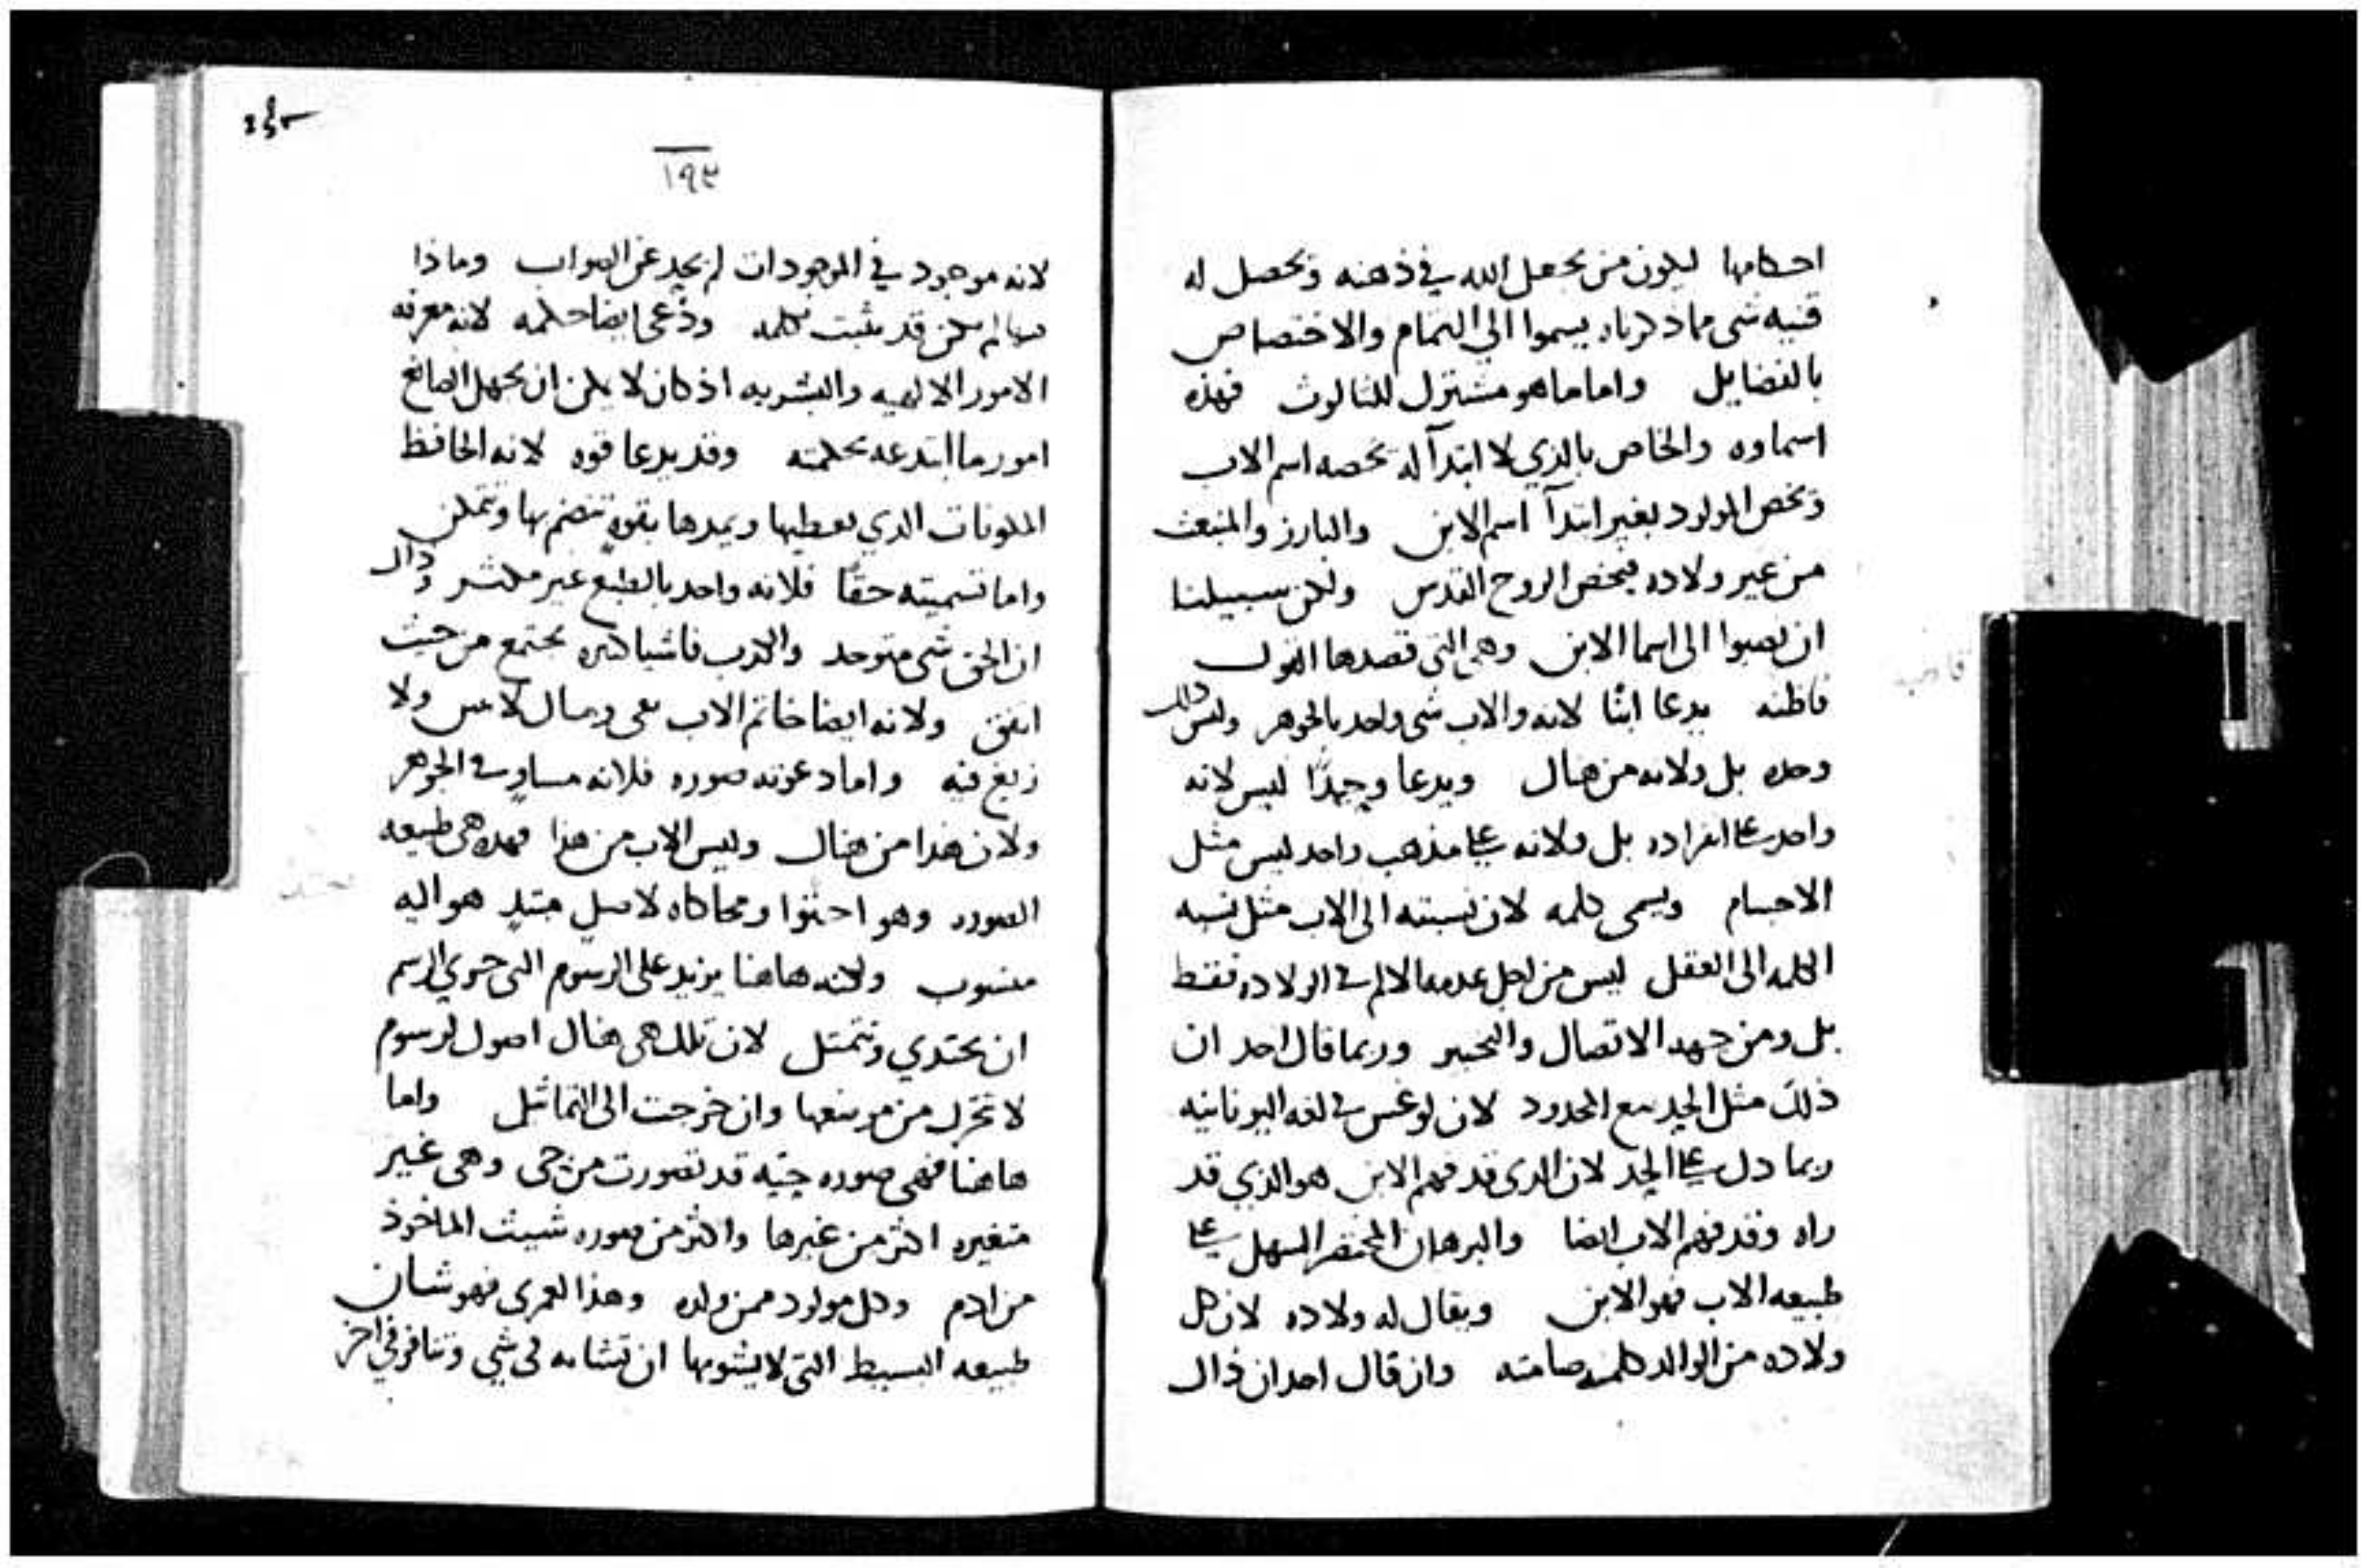 احكامها ليكون من يجعل الله في ذهنه ويحصل له
فيه شي مما ذكرناه يسموا الي التمام والاختصاص
بالفضايل واما ما هو مشترك للثالوث فهذه
اسماوه والخاص بالذي لا ابتدآ له يخصه اسم الاب
ويخص المولود بغير ابتدآ اسم الابن والبارز والمنبعث
من غير ولاده فيخص الروح القدس ولكن سبيلنا
ان نصبوا الى اسما الابن وهي التي قصدها القول
فاظنه يدعا ابنًا لانه والاب شي واحد بالجوهر وليس ذلك
وحده بل ولانه من هناك ويدعا وحيدًا ليس لانه
واحد على انفراده بل ولانه على مذهب واحد ليس مثل
الاجسام ويسمى كلمه لان نسبته الى الاب مثل نسبه
الكلمه الى العقل ليس من اجل عدمه الالم في الولاده فقط
بل ومن جهه الاتصال والخبر وربما قال احد ان
ذلك مثل الحد مع المحدود لان لوغس في لغه اليونانيه
ربما دل على الحد لان الذي قد فهم الابن هو الذي قد
راه وقد فهم الاب ايضا والبرهان المختصر السهل على
طبيعه الاب فهو الابن ويقال له ولاده لان كل
ولاده من الوالد كلمته صامته وان قال احد ان ذاك
١٩٣
لانه موجود في الموجودات لم يحد عن الصواب وماذا
لم يكن قد يثبت بكلمه ودُعي ايضا حكمه لانه معرفه
الامور الالهيه والبشريه اذ كان لا يمكن ان يجهل الصانع
امور ما ابتدعه بحكمته وقد يدعا قوه لانه الحافظ
المكونات الذي يعطيها ويمدها بقوه تنضم بها وتتمكن
واما تسميته حقًا فلانه واحد بالطبع غير متكثر وذاك
ان الحق شي متوحد والكذب فاشيا كثيره يجتمع من حيث
اتفق ولانه ايضا خاتم الاب نقي ومثال لا مين ولا
زيغ فيه واما دعوته صوره فلانه مساوٍ في الجوهر
ولان هذا من هناك وليس الاب من هذا فهذه هي طبيعه
الصوره وهو احتذا ومحاكاه لاصلٍ مبتدٍ هو اليه
منسوب ولانه هاهنا يزيد على الرسوم التي جري الرسم
ان يحتذي ويتمثل لان تلك هي هناك اصول لرسوم
لا تتحرك من موضعها وان خرجت الى التماثيل واما
هاهنا فهي صوره حيّه قد تصورت من حي وهي غير
متغيره اكثر من غيرها واكثر من صوره شيث الماخوذ
من ادم وكل مولود ممن ولده وهذا لعمري فهو شان
طبيعه البسيط التي لا يشوبها ان تشابه في شي وتنافر في اخر